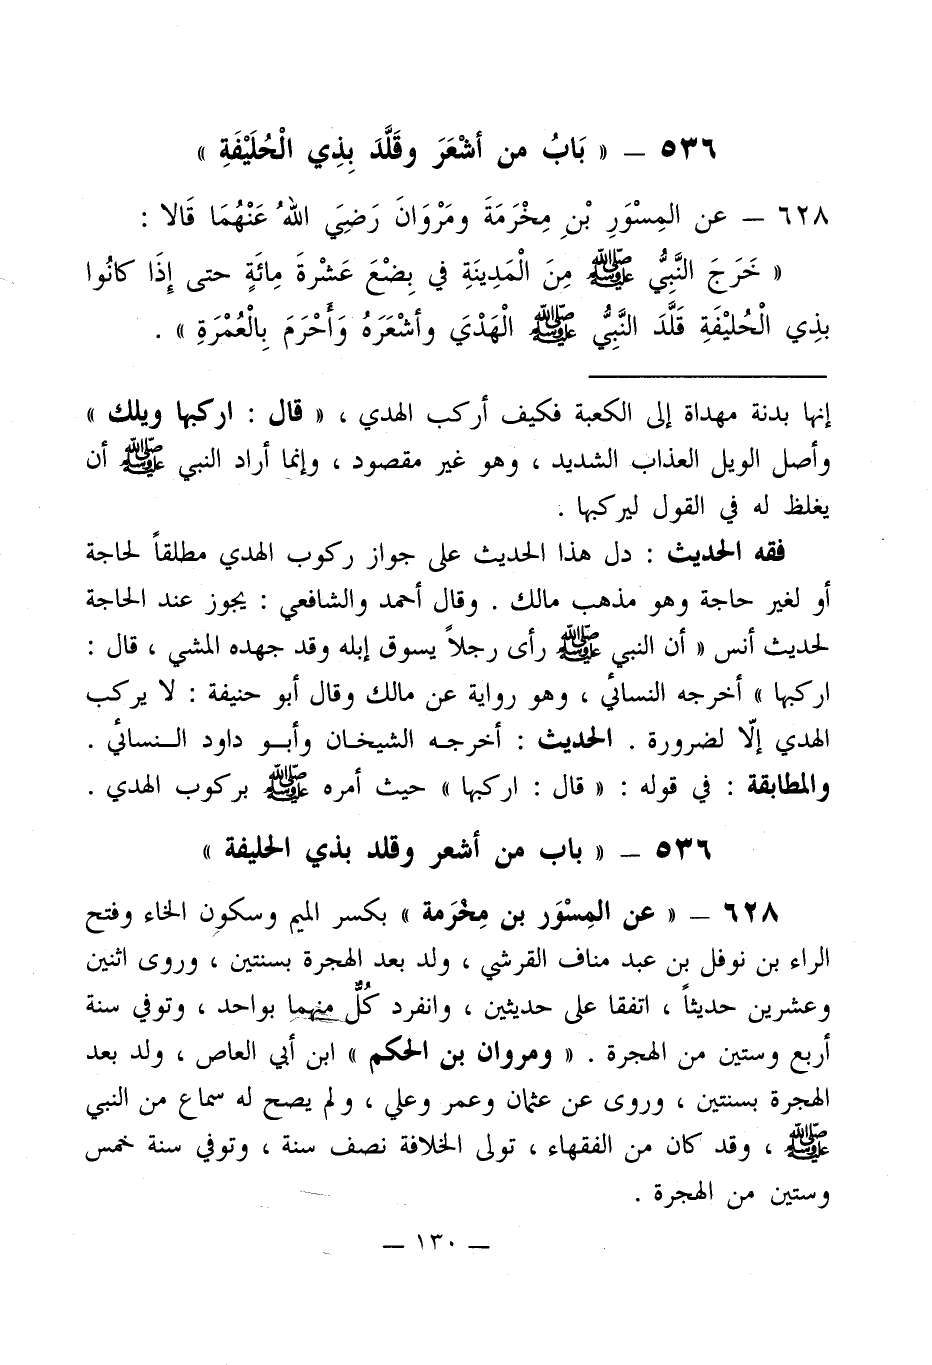 ٥٣٦ – « بَابُ من أشْعَرَ وقَلَّدَ بِذِي الْحُلَيْفَةِ »
٦٢٨ – عن المِسْوَرِ بْنِ مِخْرَمَةَ ومَرْوَانَ رَضِيَ اللهُ عَنْهُمَا قَالا :
« خَرَجَ النَّبِيُّ ﷺ مِنَ الْمَدِينَةِ في بِضْعَ عَشْرةَ مِائَةٍ حتى إِذَا كانُوا
بذِي الْحُليْفَةِ قَلَّدَ النَّبِيُّ ﷺ الْهَدْيَ وأشْعَرَهُ وَأَحْرَمَ بِالْعُمْرَةِ » .
إنها بدنة مهداة إلى الكعبة فكيف أركب الهدي ، « قال : اركبها ويلك »
وأصل الويل العذاب الشديد ، وهو غير مقصود ، وإنما أراد النبي ﷺ أن
يغلظ له في القول ليركبها .
فقه الحديث : دل هذا الحديث على جواز ركوب الهدي مطلقاً لحاجة
أو لغير حاجة وهو مذهب مالك . وقال أحمد والشافعي : يجوز عند الحاجة
لحديث أنس « أن النبي ﷺ رأى رجلاً يسوق إبله وقد جهده المشي ، قال :
اركبها » أخرجه النسائي ، وهو رواية عن مالك وقال أبو حنيفة : لا يركب
الهدي إلّا لضرورة . الحديث : أخرجه الشيخان وأبو داود النسائي .
والمطابقة : في قوله : « قال : اركبها » حيث أمره ﷺ بركوب الهدي .
٥٣٦ – « باب من أشعر وقلد بذي الحليفة »
٦٢٨ – « عن المِسْوَر بن مِخْرَمة » بكسر الميم وسكون الخاء وفتح
الراء بن نوفل بن عبد مناف القرشي ، ولد بعد الهجرة بسنتين ، وروى اثنين
وعشرين حديثاً ، اتفقا على حديثين ، وانفرد كُلٌّ منهما بواحد ، وتوفي سنة
أربع وستين من الهجرة . « ومروان بن الحكم » ابن أبي العاص ، ولد بعد
الهجرة بسنتين ، وروى عن عثمان وعمر وعلي ، ولم يصح له سماع من النبي
ﷺ ، وقد كان من الفقهاء ، تولى الخلافة نصف سنة ، وتوفي سنة خمس
وستين من الهجرة .
– ١٣٠ –